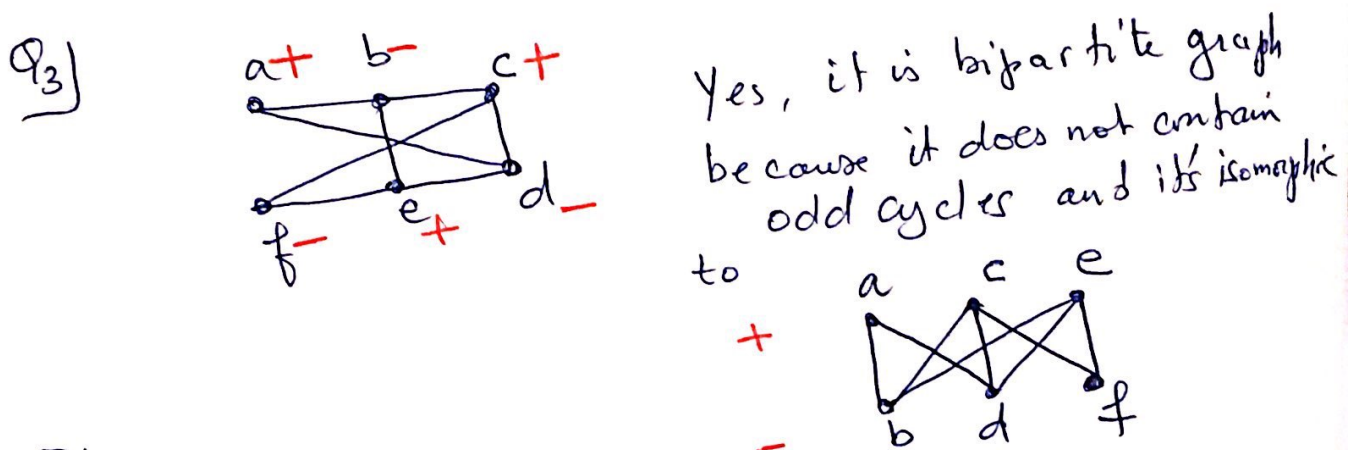 Q3)
a+ b- c+
f- e+ d-
Yes, it is bipartite graph
because it does not contain
odd cycles and it's isomorphic
to
a c e
+
b d f
-